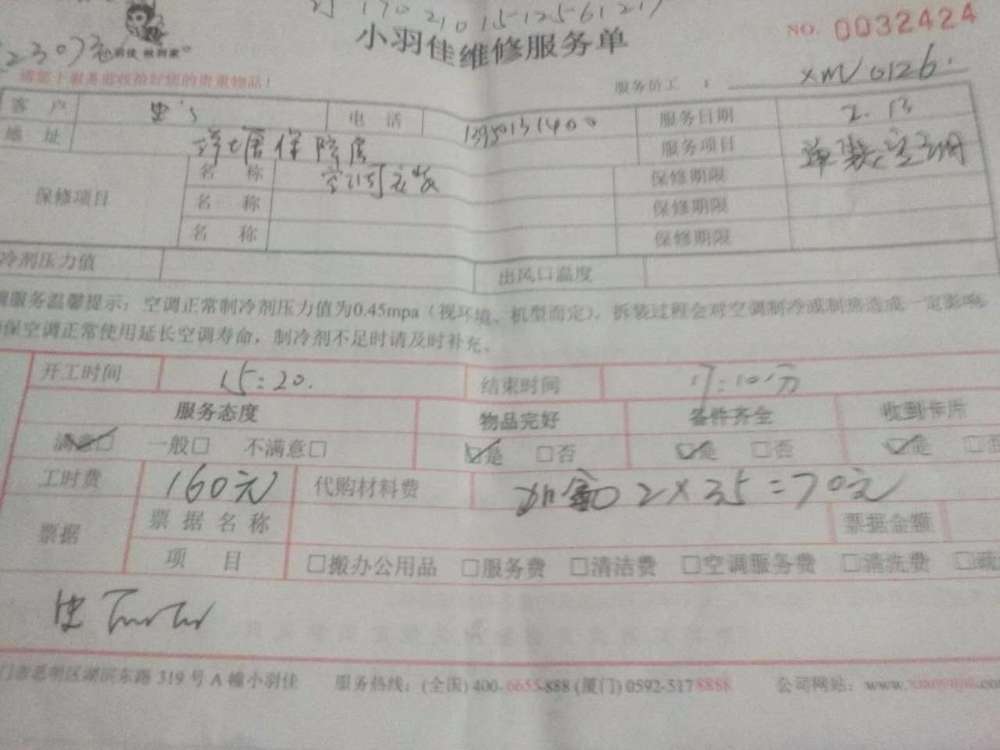 小羽佳维修服务单
NO. 0032424
小羽佳 做到家
服务员工 : XM0126
客户 电话 服务日期 2.13
地址 保障房 服务项目
保修项目 名称 保修期限
名称 保修期限
名称 保修期限
冷剂压力值 出风口温度
服务温馨提示：空调正常制冷剂压力值为0.45mpa（视环境、机型而定），拆装过程会对空调制冷或制热造成一定影响
保空调正常使用延长空调寿命，制冷剂不足时请及时补充。
开工时间 15:20. 结束时间 17:10分
服务态度 物品完好 备件齐全 收到卡片
满意□ 一般□ 不满意□ ☑是 □否 ☑是 □否 ☑是
工时费 160元 代购材料费 加氟 2×35=70元
票据 票据名称 票据金额
项目 □搬办公用品 □服务费 □清洁费 □空调服务费 □清洗费
门市思明区湖滨东路319号A幢小羽佳 服务热线：(全国) 400-6655-888 (厦门) 0592-5178888 公司网站：www.